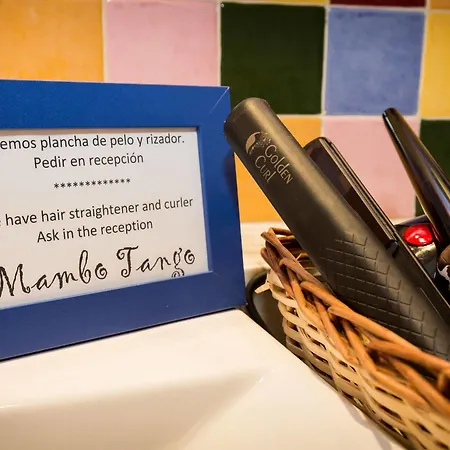 emos plancha de pelo y rizador.
Pedir en recepción
*************
have hair straightener and curler
Ask in the reception
Mambo Tango
Golden
Curl